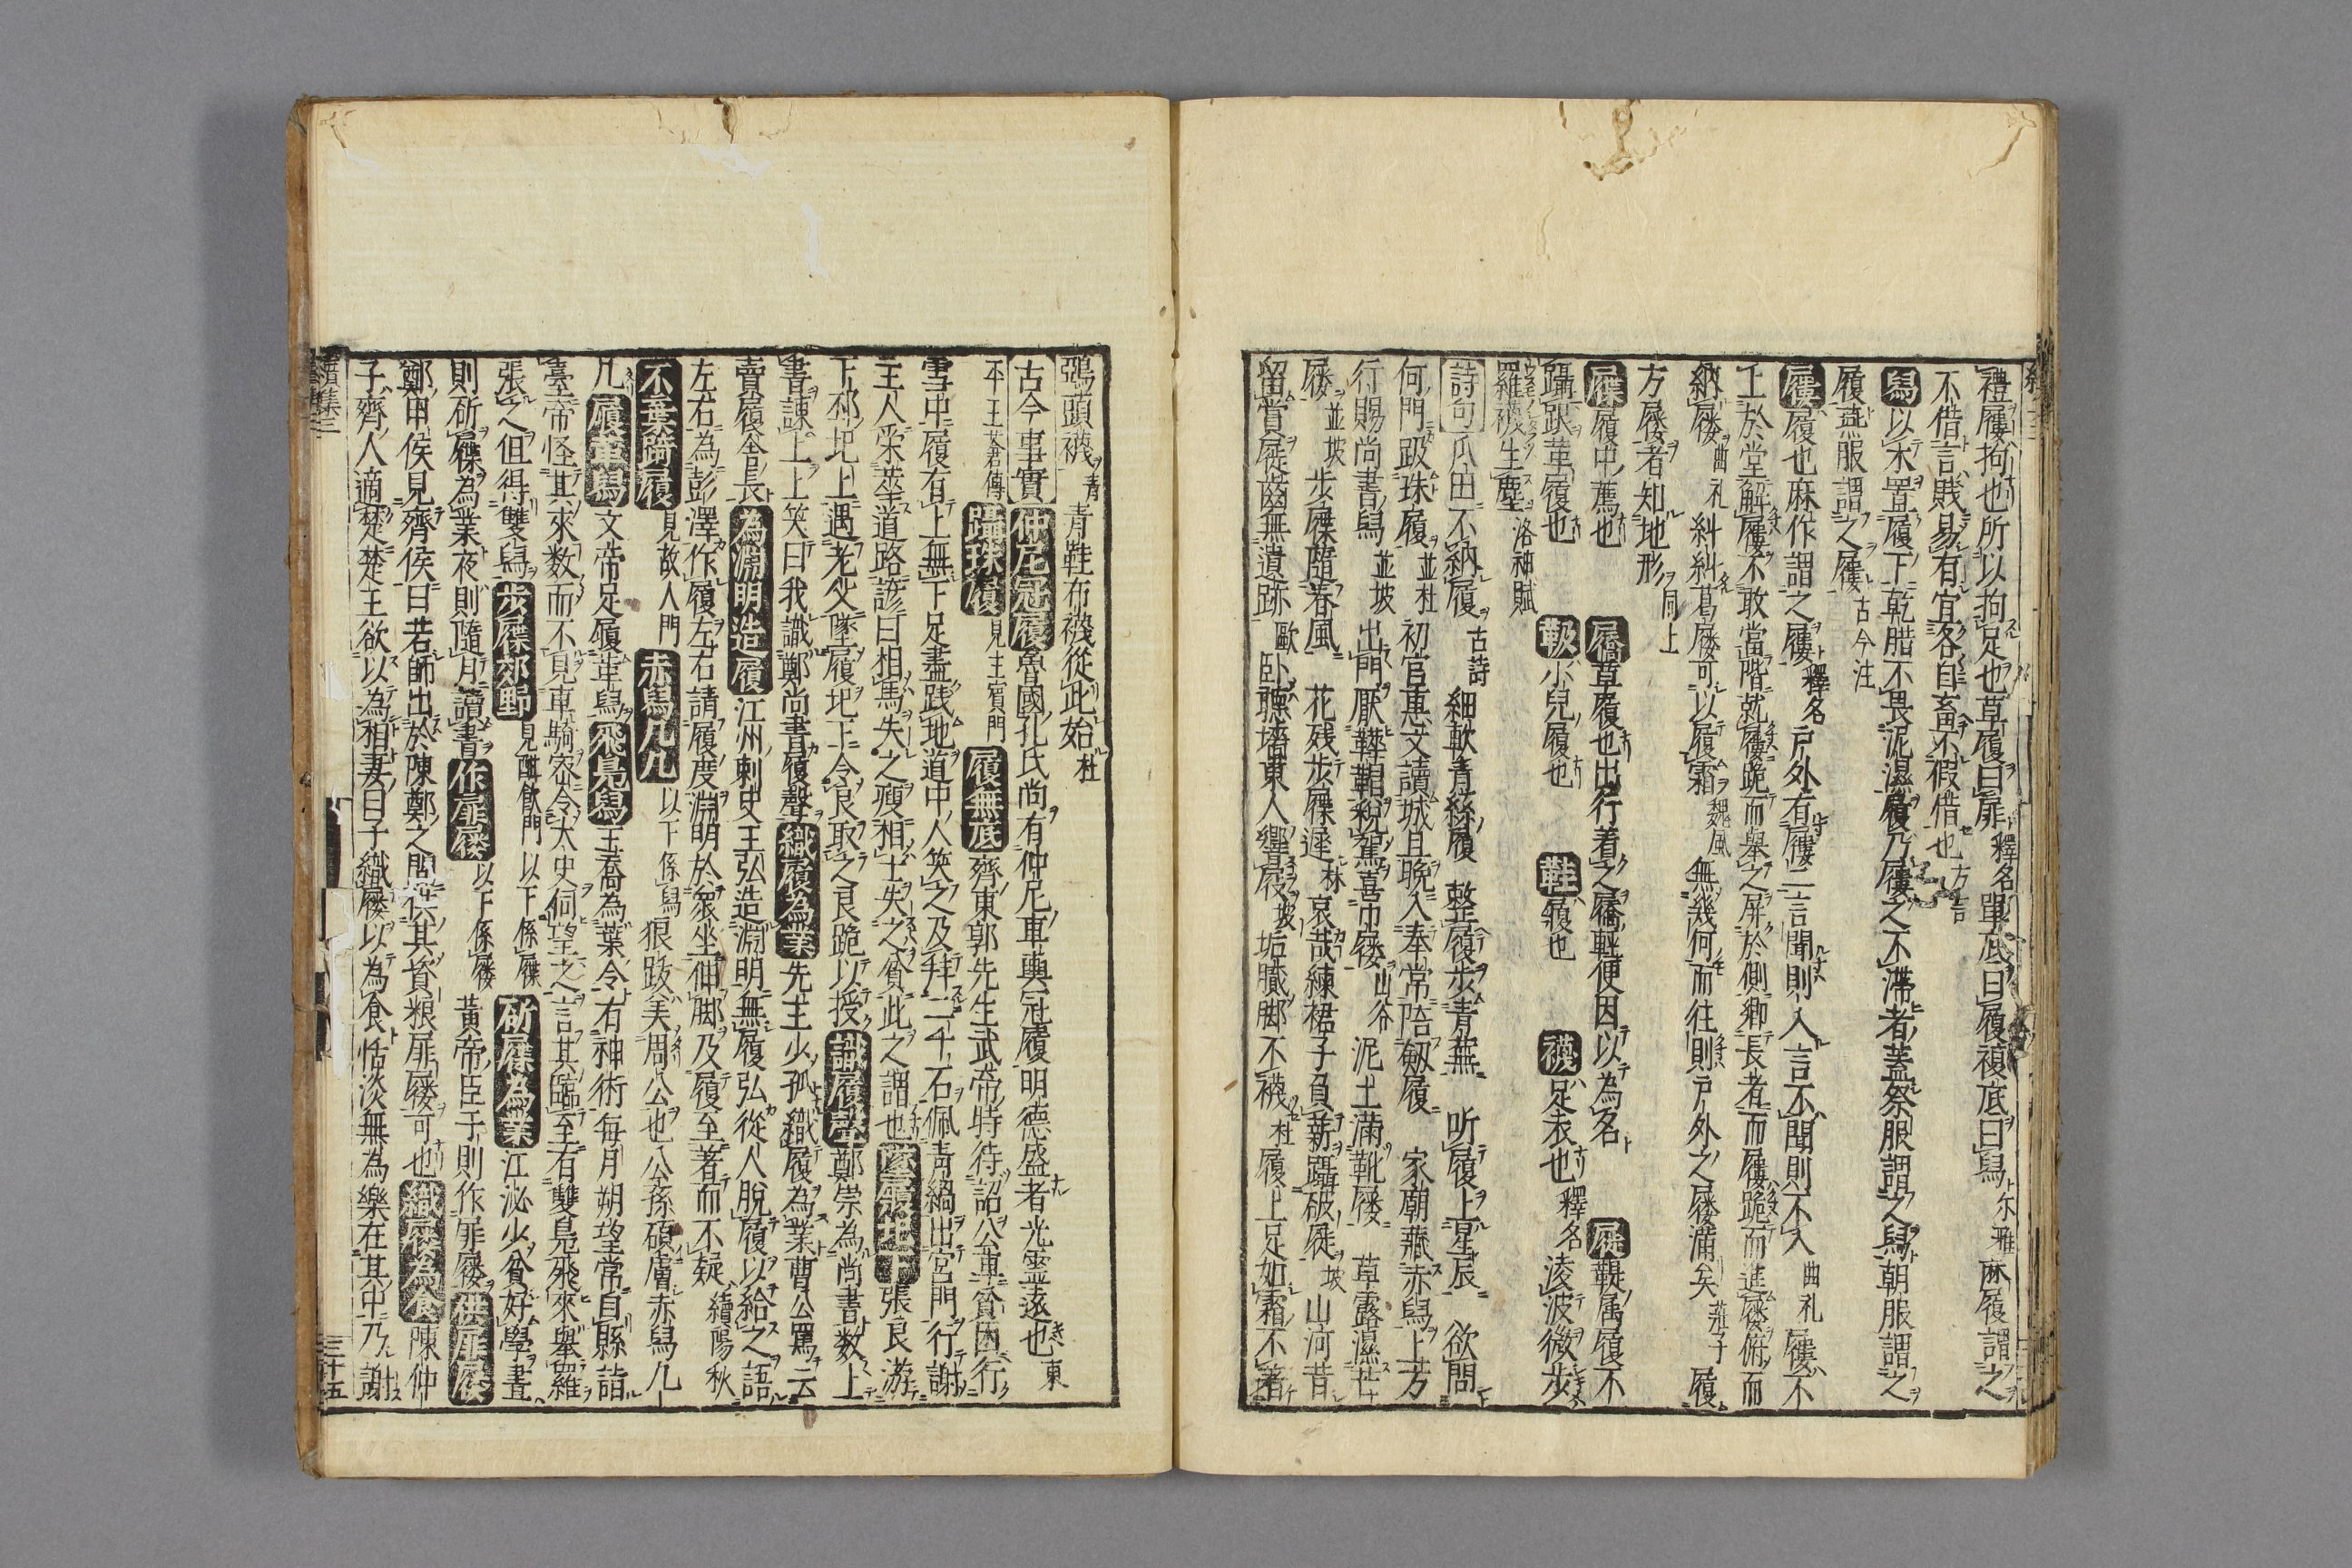 禮屨拘也所以拘足也草履曰屝釋名單底曰履複底曰舄尔雅麻履謂之
不借言賎易有宜各自畜不假借也方言
舄以木置履下乾腊不畏泥濕履乃屨之不滯者蓋祭服謂之舄朝服謂之
履燕服謂之屨古今注
屨履也麻作謂之屨釋名戸外有屨二言聞則入言不聞則不入曲礼屨不
上於堂解屨不敢當階就屨跪而舉之屏於側鄉長者而屨跪而遷屨俯而
納屨曲礼糾糾葛屨可以履霜魏風無幾何而往則戸外之屨滿矣莊子履
方屨者知地形同上
屧履中薦也 屩草履也出行着之屩輕便因以為名 屣鞮属履不
躡跟革履也 靸小兒履也 鞋履也 襪足衣也釋名淩波微步
羅襪生塵洛神賦
詩句瓜田不納履古詩 細軟青絲履 整履步青蕪 听履上星辰 欲問
何門跋珠履並杜 初官惠文讀城旦晩入奉常陪劔履 家廟藏赤舄上方
行賜尚書舄並坡 出門厭鞾帽税駕喜巾屨山谷 泥土滿靴屨 草露濕芒
屨並坡 步屧隨春風 花残步屧遲林 哀哉練裙子負薪躡破屣坡 山河昔
留賞屐齒無遺跡歐 卧聽墻東人響屐坡 垢膩脚不襪杜 履上足如霜不著
鵶頭襪青 青鞋布襪從此始杜
古今事實 仲尼冠履魯國孔氏尚有仲尼車輿冠履明德盛者光靈逺也東
平王蒼傳 躡珠履見主賓門 履無底齊東郭先生武帝時待詔公車貧困行
雪中履有上無下足盡践地道中人笑之及拜二千石佩青緺出宮門行謝
主人榮華道路諺曰相馬失之瘦相士失之貧此之謂也 墜履圯下張良游
下邳圯上遇老父墜履圯下令良取之良跪以授 識履聲鄭崇為尚書数上
書諫上上笑曰我識鄭尚書履聲 織履為業先主少孤織履為業曹公罵云
賣履舍長 為淵明造履江州刺史王弘造淵明無履弘從人脱履以給之語
左右為彭澤作履左右請履度淵明於衆坐伸脚及履至著而不疑續陽秋
不棄踦履見故人門 赤舄几几以下係舄狼跋美周公也公孫碩膚赤舄几
几 履革舄文帝足履革舄 飛鳬舄王喬為葉令有神術每月朔望常自縣詣
臺帝怪其來数而不見車騎密令太史伺望之言其臨至有雙鳬飛來舉羅
張之但得雙舄 步屧郊野見酣飲門以下係屧 斫屧為業江泌少貧好學晝
則斫屧為業夜則隨月讀書 作屝屨以下係屨黄帝臣于則作屝屨 供屝屨
鄭申侯見齊侯曰若師出於陳鄭之間供其資粮屝屨可也 織屨為食陳仲
子齊人適楚楚王欲以為相妻曰子織屨以為食恬淡無為樂在其中乃謝
三十五